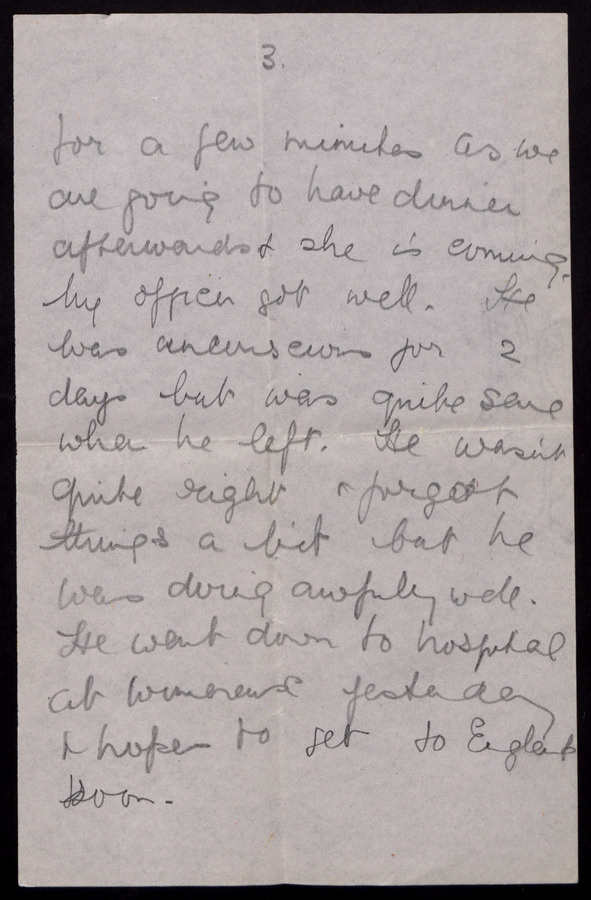 3.
for a few minutes as we
are going to have dinner
afterwards & she is coming.
My officer got well. He
was unconscious for 2
days but was quite sane
when he left. He wasn't
quite right & forgot
things a bit but he
was doing awfully well.
He went down to hospital
at Wimereux yesterday
& hopes to get to England
soon.